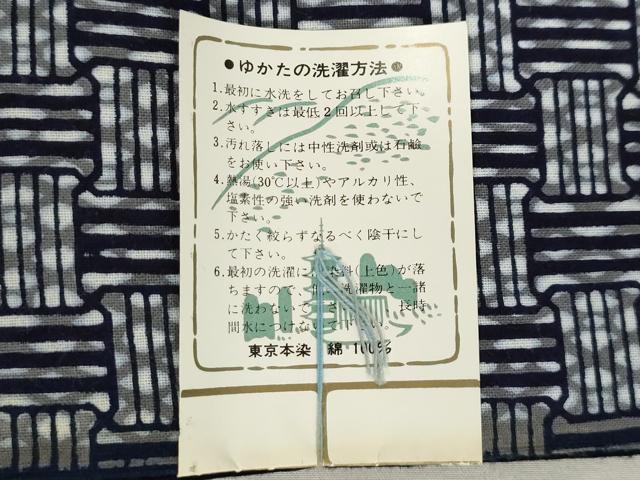 ●ゆかたの洗濯方法●
1.最初に水洗をしてお召し下さい。
2.水すすぎは最低2回以上して下
さい。
3.汚れ落しには中性洗剤或は石鹼
をお使い下さい。
4.熱湯(30℃以上)やアルカリ性、
塩素性の強い洗剤を使わないで
下さい。
5.かたく絞らずなるべく陰干にし
て下さい。
6.最初の洗濯に 料(上色)が落
ちますので、 洗濯物と一諸
に洗わないで 長時
間水につけないで下さい。
東京本染 綿 100%